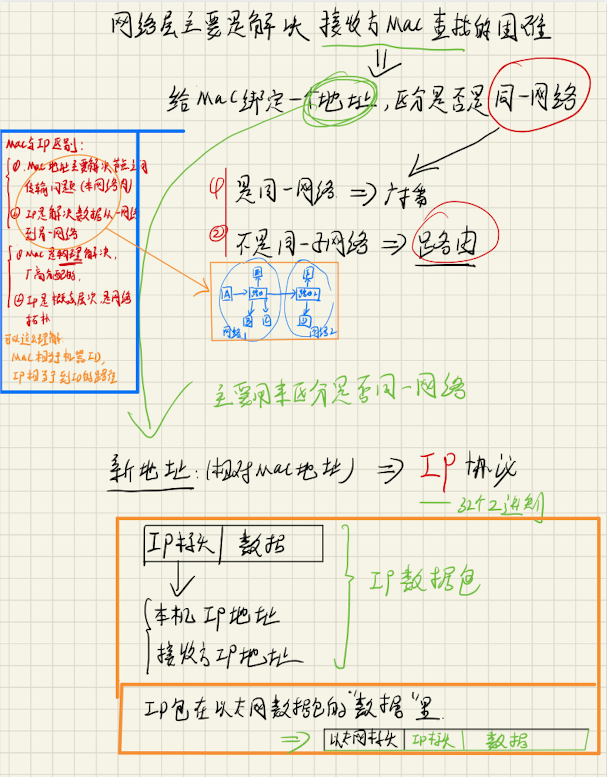 网络层主要是解决 接收方Mac查找的困难
给Mac绑定一个地址,区分是否是同一网络
Mac与IP区别:
①.Mac地址主要解决节点之间
传输问题(本网络内)
②IP是解决数据从一网络
到另一网络
①Mac是物理解决,
厂商分配的,
②IP是概念层次,是网络
拓扑
可以这么理解:
Mac相当于机器ID,
IP相当于到ID的路径
① 是同一网络 => 广播
② 不是同一子网络 => 路由
A
网络1
网络2
主要用来区分是否同一网络
新地址:(相对Mac地址) => IP 协议
— 32个2进制
IP标头 数据
IP数据包
本机IP地址
接收方IP地址
IP包在以太网数据包的"数据"里
=> 以太网标头 IP标头 数据